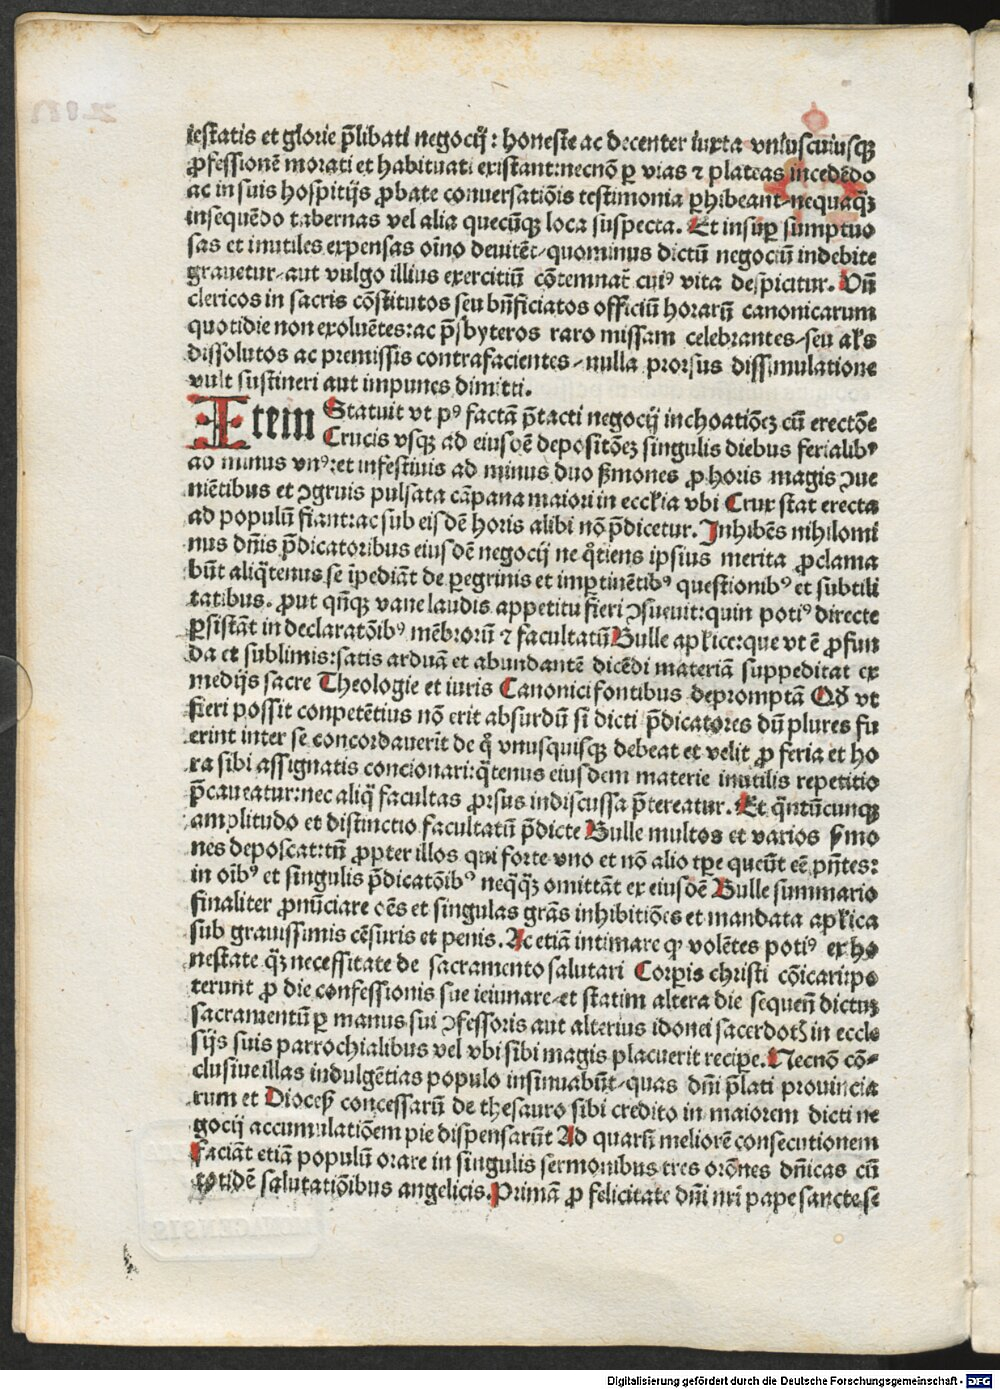 iestatis et glorie p̄libati negocij : honeste ac decenter iuxta vniuscuiusqꝫ
ꝓfessionē morati et habituati existant: necnō ꝑ vias ⁊ plateas incedēdo
ac in suis hospitijs ꝓbate conuersatiōis testimonia ꝑhibeant, nequaqꝫ̄
insequēdo tabernas vel alia quecūqꝫ loca suspecta. Et insuꝑ sumptuo
sas et inutiles expensas oīno deuitēt, quominus dictū negociū indebite
grauetur, aut vulgo illius exercitiū cōtemnat̄ cuiꝰ vita despicitur. Dn̄
clericos in sacris cōstitutos seu bn̄ficiatos officiū horarū canonicarum
quotidie non exoluētes: ac p̄sbyteros raro missam celebrantes, seu al̄s
dissolutos ac premissis contrafacientes, nulla prorsus dissimulatione
vult sustineri aut impunes dimitti.
Item Statuit vt pꝰ factā p̄tacti negocij inchoatiōeꝫ cū erectōe
Crucis vsqꝫ ad eiusdē depositōeꝫ singulis diebus ferialibꝰ
ad minus vnꝰ: et in festiuis ad minus duo ẜmones ꝓ horis magis ꝯue
niētibus et ꝯgruis pulsata cāpana maiori in ecclīa vbi Crux stat erecta
ad populū fiant: ac sub eisdē horis alibi nō p̄dicetur. Inhibēs nihilomi
nus dn̄is p̄dicatoribus eiusdē negocij ne q̊tiens ipsius merita ꝓclama
būt aliq̄tenus se īpediāt de ꝑegrinis et imꝑtinētibꝰ questionibꝰ et subtili
tatibus. ꝓut qn̄qꝫ vane laudis appetitu fieri ꝯsueuit: quin potiꝰ directe
ꝑsistāt in declaratōibꝰ mēbrorū ⁊ facultatū Bulle apl̄ice: que vt ē ꝓfun
da et sublimis: satis arduā et abundantē dicēdi materiā suppeditat ex
medijs sacre Theologie et iuris Canonici fontibus depromptā Qd̄ vt
fieri possit conpetētius nō erit absurdū si dicti p̄dicatores dū plures fu
erint inter se concordauerīt de q̊ vnusquisqꝫ debeat et velit ꝓ feria et ho
ra sibi assignatis concionari: q̄tenus eiusdem materie inutilis repetitio
p̄caueatur: nec aliq̄ facultas ꝓrsus indiscussa p̄tereatur. Et q̄ntūcunqꝫ
amplitudo et distinctio facultatū p̄dicte Bulle multos et varios ẜmo
nes deposcat: tn̄ ꝓpter illos qui forte vno et nō alio tꝑe queūt eē pn̄tes:
in oībꝰ et singulis p̄dicatōibꝰ neq̄qꝫ̄ omittāt ex eiusdē Bulle summario
finaliter ꝓnūciare oēs et singulas grās inhibitiōes et mandata apl̄ica
sub grauissimis cēsuris et penis. Ac etiā intimare ꝙ volētes potiꝰ ex ho
nestate qꝫ̄ necessitate de sacramento salutari Corꝑis christi cōicari: po
terunt ꝓ die confessionis sue ieiunare, et statim altera die sequen̄ dictuꝫ
sacramentū ꝑ manus sui ꝯfessoris aut alterius idonei sacerdotꝭ in eccle
sijs suis parrochialibus vel vbi sibi magis placuerit recipe. Necnō cō-
clusiue illas indulgētias populo insinuabūt, quas dn̄i p̄lati prouincia
rum et Dioceẜ concessarū de thesauro sibi credito in maiorem dicti ne
gocij accumulatiōem pie dispensarūt Ad quarū meliorē consecutionem
faciāt etiā populū orare in singulis sermonibus tres orōnes dn̄icas cū
totidē salutatiōibus angelicis. Primā ꝓ felicitate dn̄i nr̄i pape sancte se
Digitalisierung gefördert durch die Deutsche Forschungsgemeinschaft - DFG